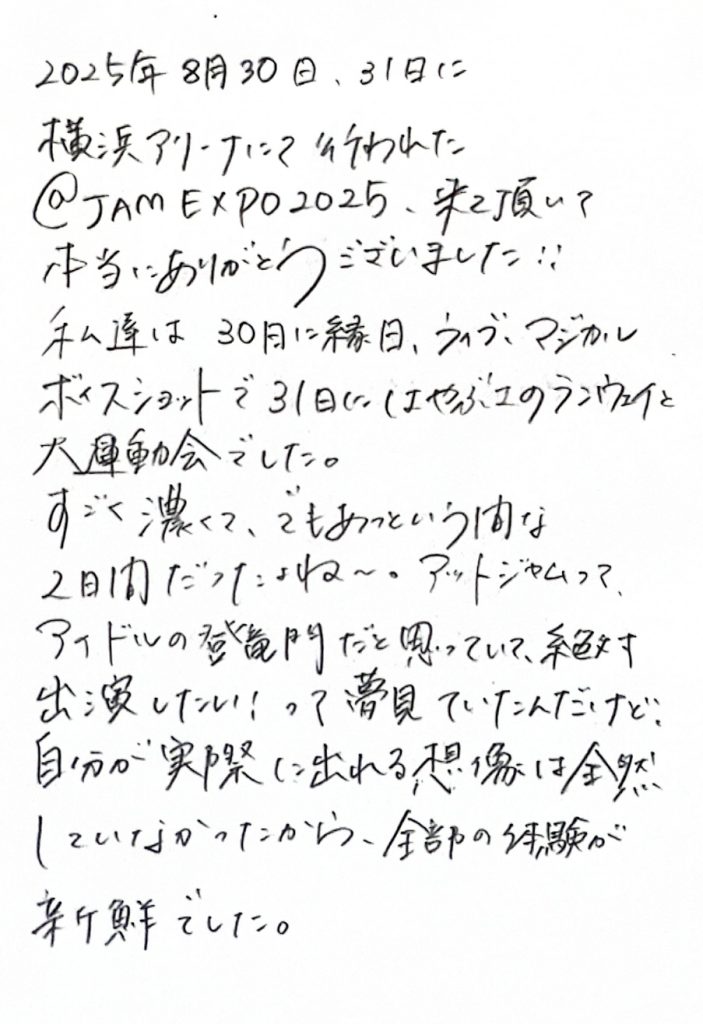 2025年8月30日、31日に
横浜アリーナにて行われた
@JAM EXPO2025、来て頂いて
本当にありがとうございました!!
私達は 30日に縁日、ライブ、マジカル
ボイスショットで31日にはやぶさのランウェイと
大運動会でした。
すごく濃くて、でもあっという間な
2日間だったよね〜。アットジャムって、
アイドルの登竜門だと思っていて、絶対
出演したい!って夢見ていたんだけど、
自分が実際に出れる想像は全然
していなかったから、全部の体験が
新鮮でした。